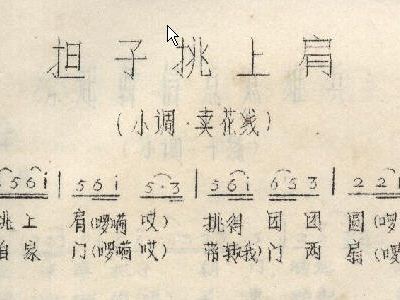 担子挑上肩
(小调·卖花线)
5 6 i | 5 6 i 5·3 | 5 6 i 6 5 3 | 2 2 i
挑上 肩(啰嗬 哎) 挑得 团团 圆(啰
自家 门(啰嗬 哎) 带转(我)门两 扇(啰